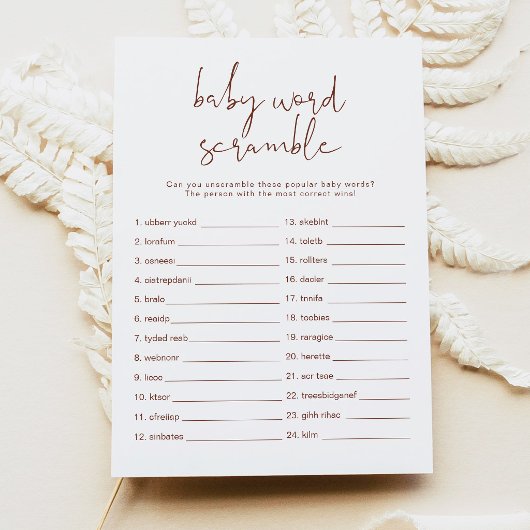 baby word
scramble
Can you unscramble these popular baby words?
The person with the most correct wins!
1. ubberr yuckd
2. lorafum
3. osneesi
4. oistrepdanii
5. bralo
6. reaidp
7. tyded reab
8. webnonr
9. licoc
10. ktsor
11. cfreiiap
12. sinbates
13. skeblnt
14. toletb
15. rollters
16. daoler
17. tnnifa
18. toobies
19. raragice
20. herette
21. acr tsae
22. treesbidganef
23. gihh rihac
24. kilm